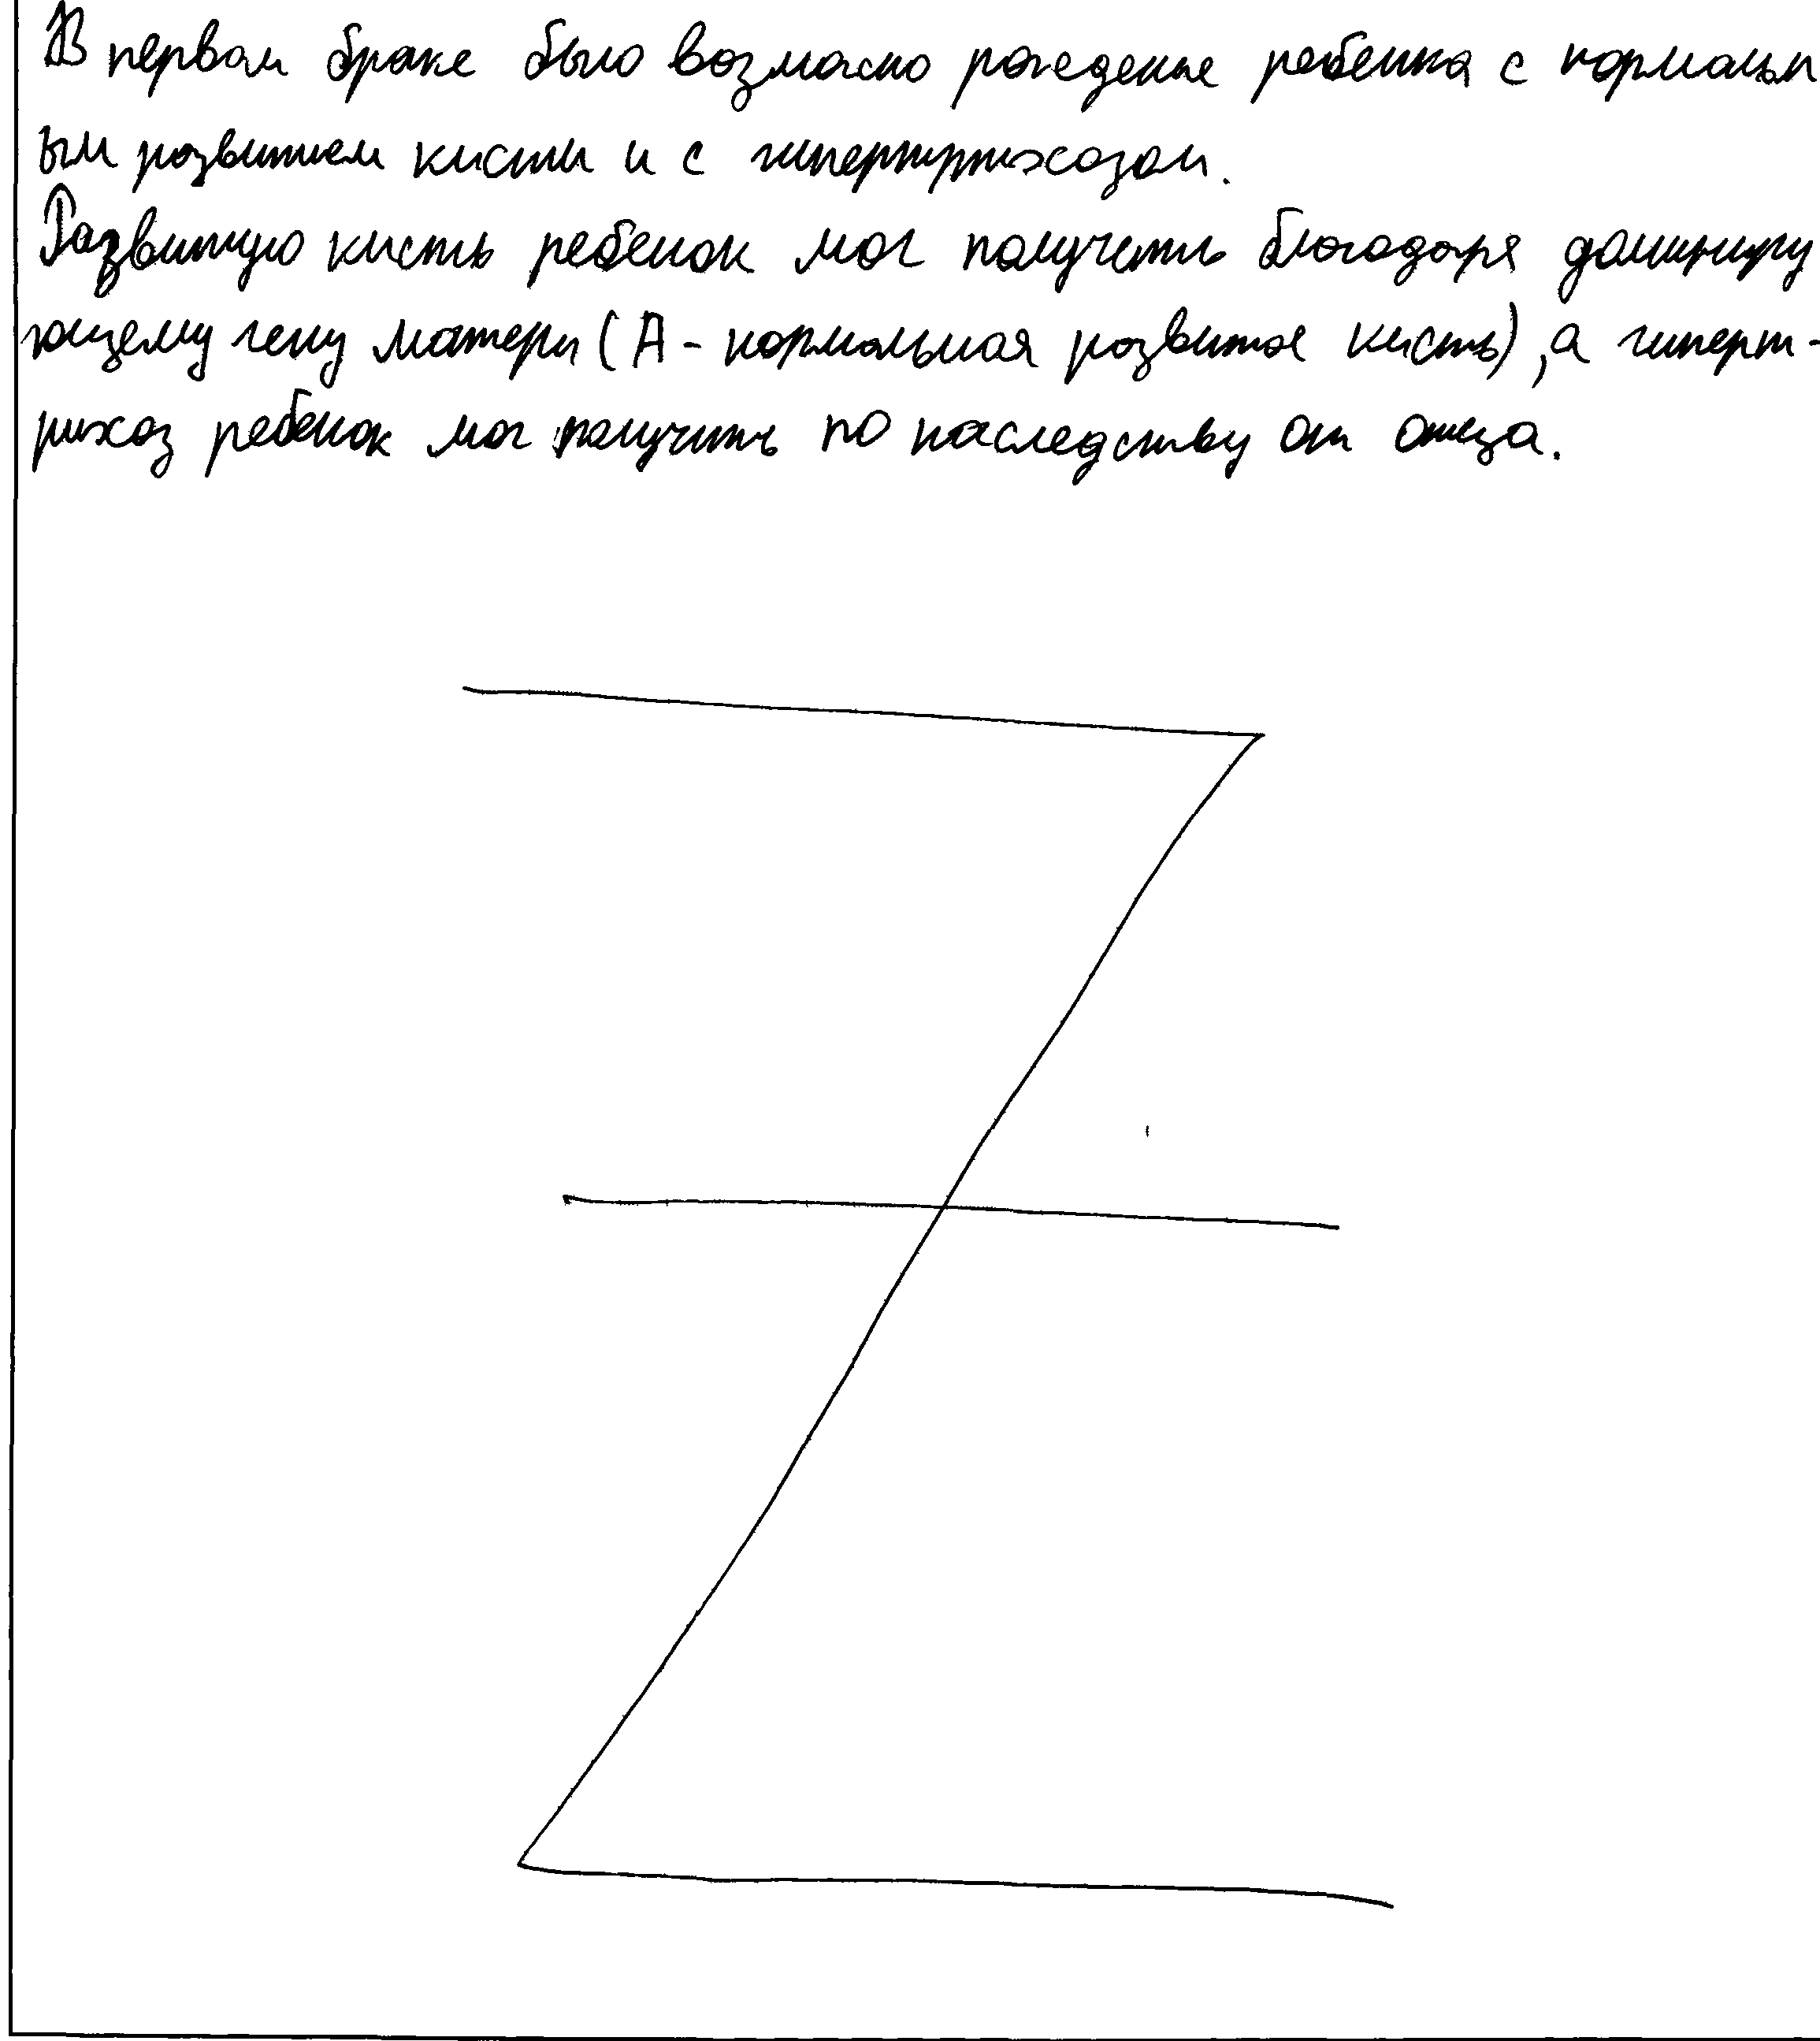 В первом браке было возможно рождение ребенка с нормальн
ым развитием кисти и с гипертрихозом.
Развитую кисть ребенок мог получить благодаря доминиру
ющему гену матери (А - нормальная развитая кисть), а гиперт-
рихоз ребенок мог получить по наследству от отца.